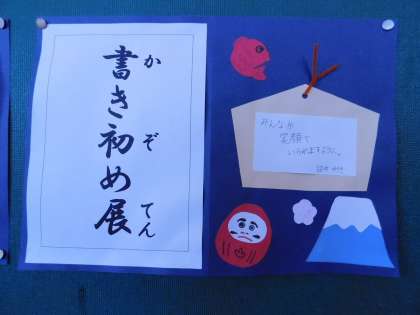 書き初め展
かぞてん
みんなが
笑顔で
いられますように。